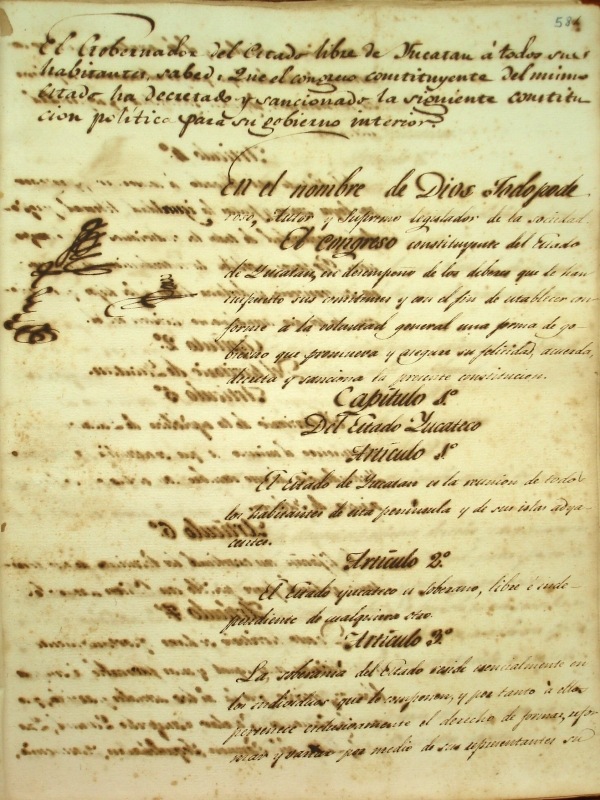 58
El Gobernador del Estado libre de Yucatan á todos sus
habitantes, sabed: Que el congreso constituyente del mismo
Estado ha decretado y sancionado la siguiente constitu
cion política para su gobierno interior.
En el nombre de Dios Todopode
roso, Autor y Supremo legislador de la sociedad.
El congreso constituyente del Estado
de Yucatan, en desempeño de los deberes que le han
impuesto sus comitentes y con el fin de establecer con
forme a la voluntad general una forma de go-
bierno que promueva y asegure su felicidad, acuerda,
decreta y sanciona la presente constitucion.
Capítulo 1.º
Del Estado Yucateco
Artículo 1.º
El Estado de Yucatan es la reunion de todos
los habitantes de esta peninsula y de sus islas adya
centes.
Artículo 2.º
El Estado yucateco es soberano, libre é inde-
pendiente de cualquiera otro.
Artículo 3.º
La soberanía del Estado reside esencialmente en
los individuos que lo componen, y por tanto á ellos
pertenece exclusivamente el derecho de formar, refor
mar y variar por medio de sus representantes su